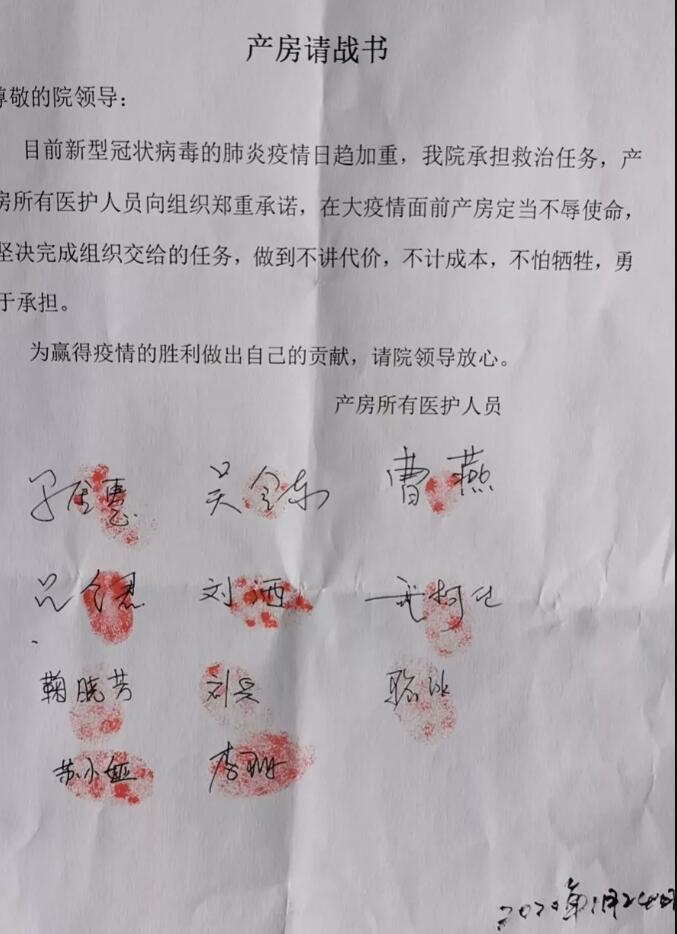 产房请战书
尊敬的院领导：
目前新型冠状病毒的肺炎疫情日趋加重，我院承担救治任务，产
房所有医护人员向组织郑重承诺，在大疫情面前产房定当不辱使命，
坚决完成组织交给的任务，做到不讲代价，不计成本，不怕牺牲，勇
于承担。
为赢得疫情的胜利做出自己的贡献，请院领导放心。
产房所有医护人员
吴 曹燕
刘
鞠晓芳 刘兵
苏小娅 李珊
2020年1月24日